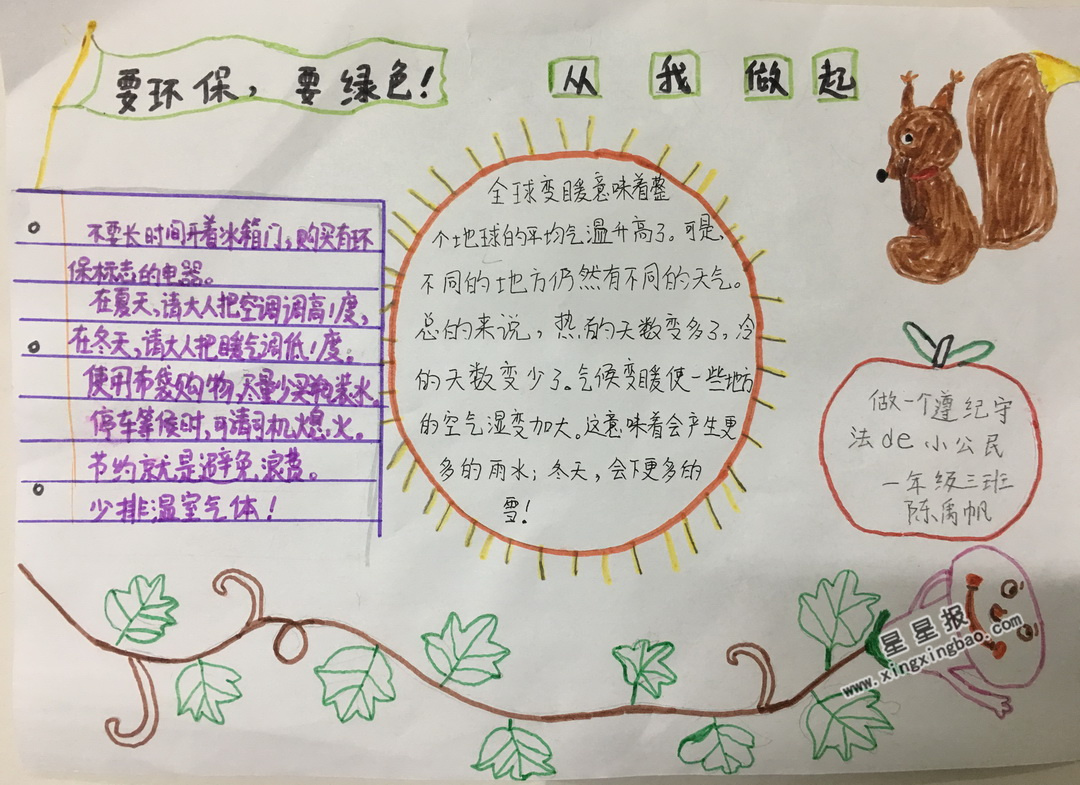 要环保，要绿色！
从我做起
不要长时间开着冰箱门，购买有环
保标志的电器。
在夏天，请大人把空调调高1度，
在冬天，请大人把暖气调低1度。
使用布袋购物，尽量少买瓶装水。
停车等候时，可请司机熄火。
节约就是避免浪费。
少排温室气体！
全球变暖意味着整
个地球的平均气温升高了。可是，
不同的地方仍然有不同的天气。
总的来说，热的天数变多了，冷
的天数变少了。气候变暖使一些地方
的空气湿变加大。这意味着会产生更
多的雨水；冬天，会下更多的
雪！
做一个遵纪守
法de小公民
一年级三班
陈禹帆
星星报
www.xingxingbao.com